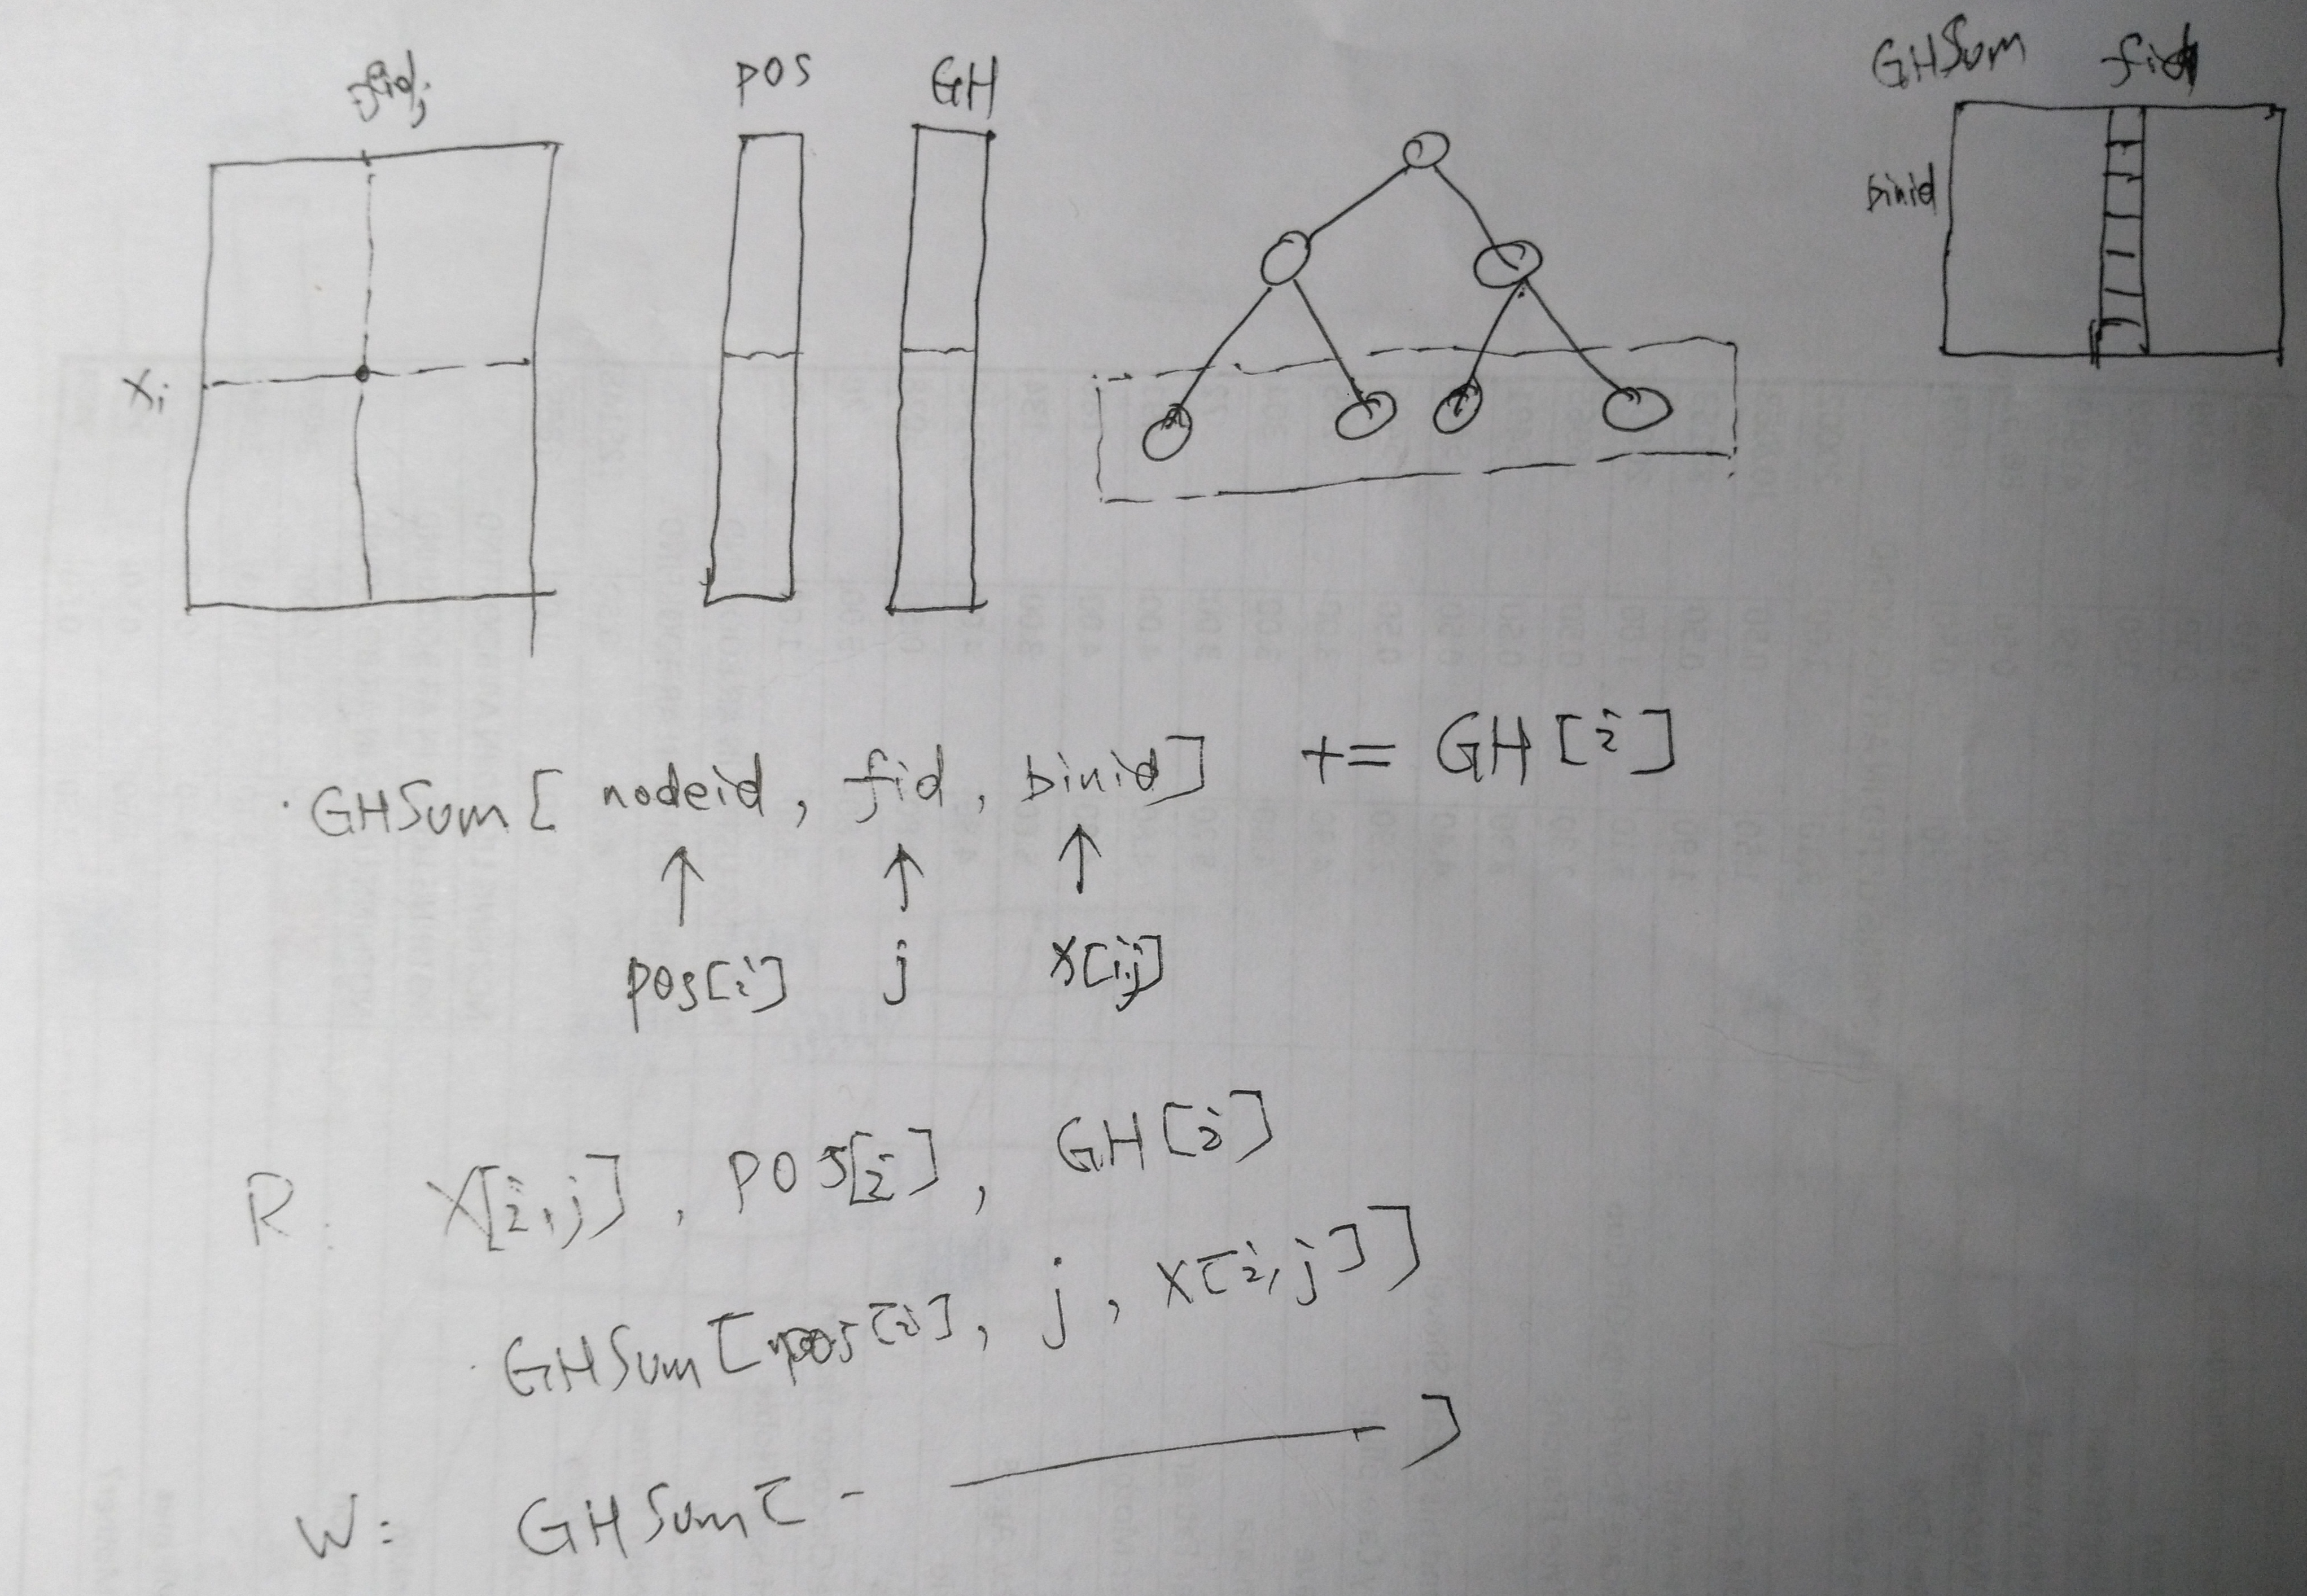 POS
GH
GHSum fid
binid
Xi
GHSum [ nodeid, fid, binid] += GH [i]
↑ ↑ ↑
pos[i] j X[i,j]
R: X[i,j], POS[i], GH[i]
GHSum [pos[i], j, X[i,j]]
W: GHSum[ - — ]